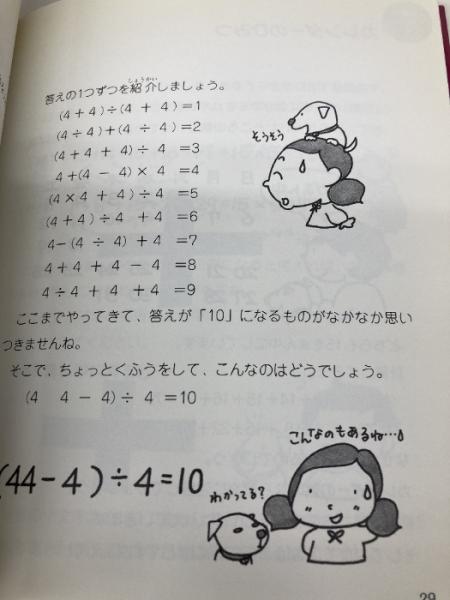 答えの1つずつを紹介しましょう。
しょうかい
(4+4)÷(4 + 4)=1
(4÷4)+(4 ÷ 4)=2
(4+4 + 4)÷ 4 =3
4+(4 − 4)× 4 =4
(4×4 + 4)÷ 4=5
(4+4)÷ 4 + 4=6
4−(4 ÷ 4)+ 4=7
4+4 + 4 − 4 =8
4÷4 + 4 +4 =9
そうそう
ここまでやってきて、答えが「10」になるものがなかなか思い
つきませんね。
そこで、ちょっとくふうをして、こんなのはどうでしょう。
(4 4 −4)÷ 4 =10
こんなのもあるね…
(44−4)÷4=10
わかってる?
29